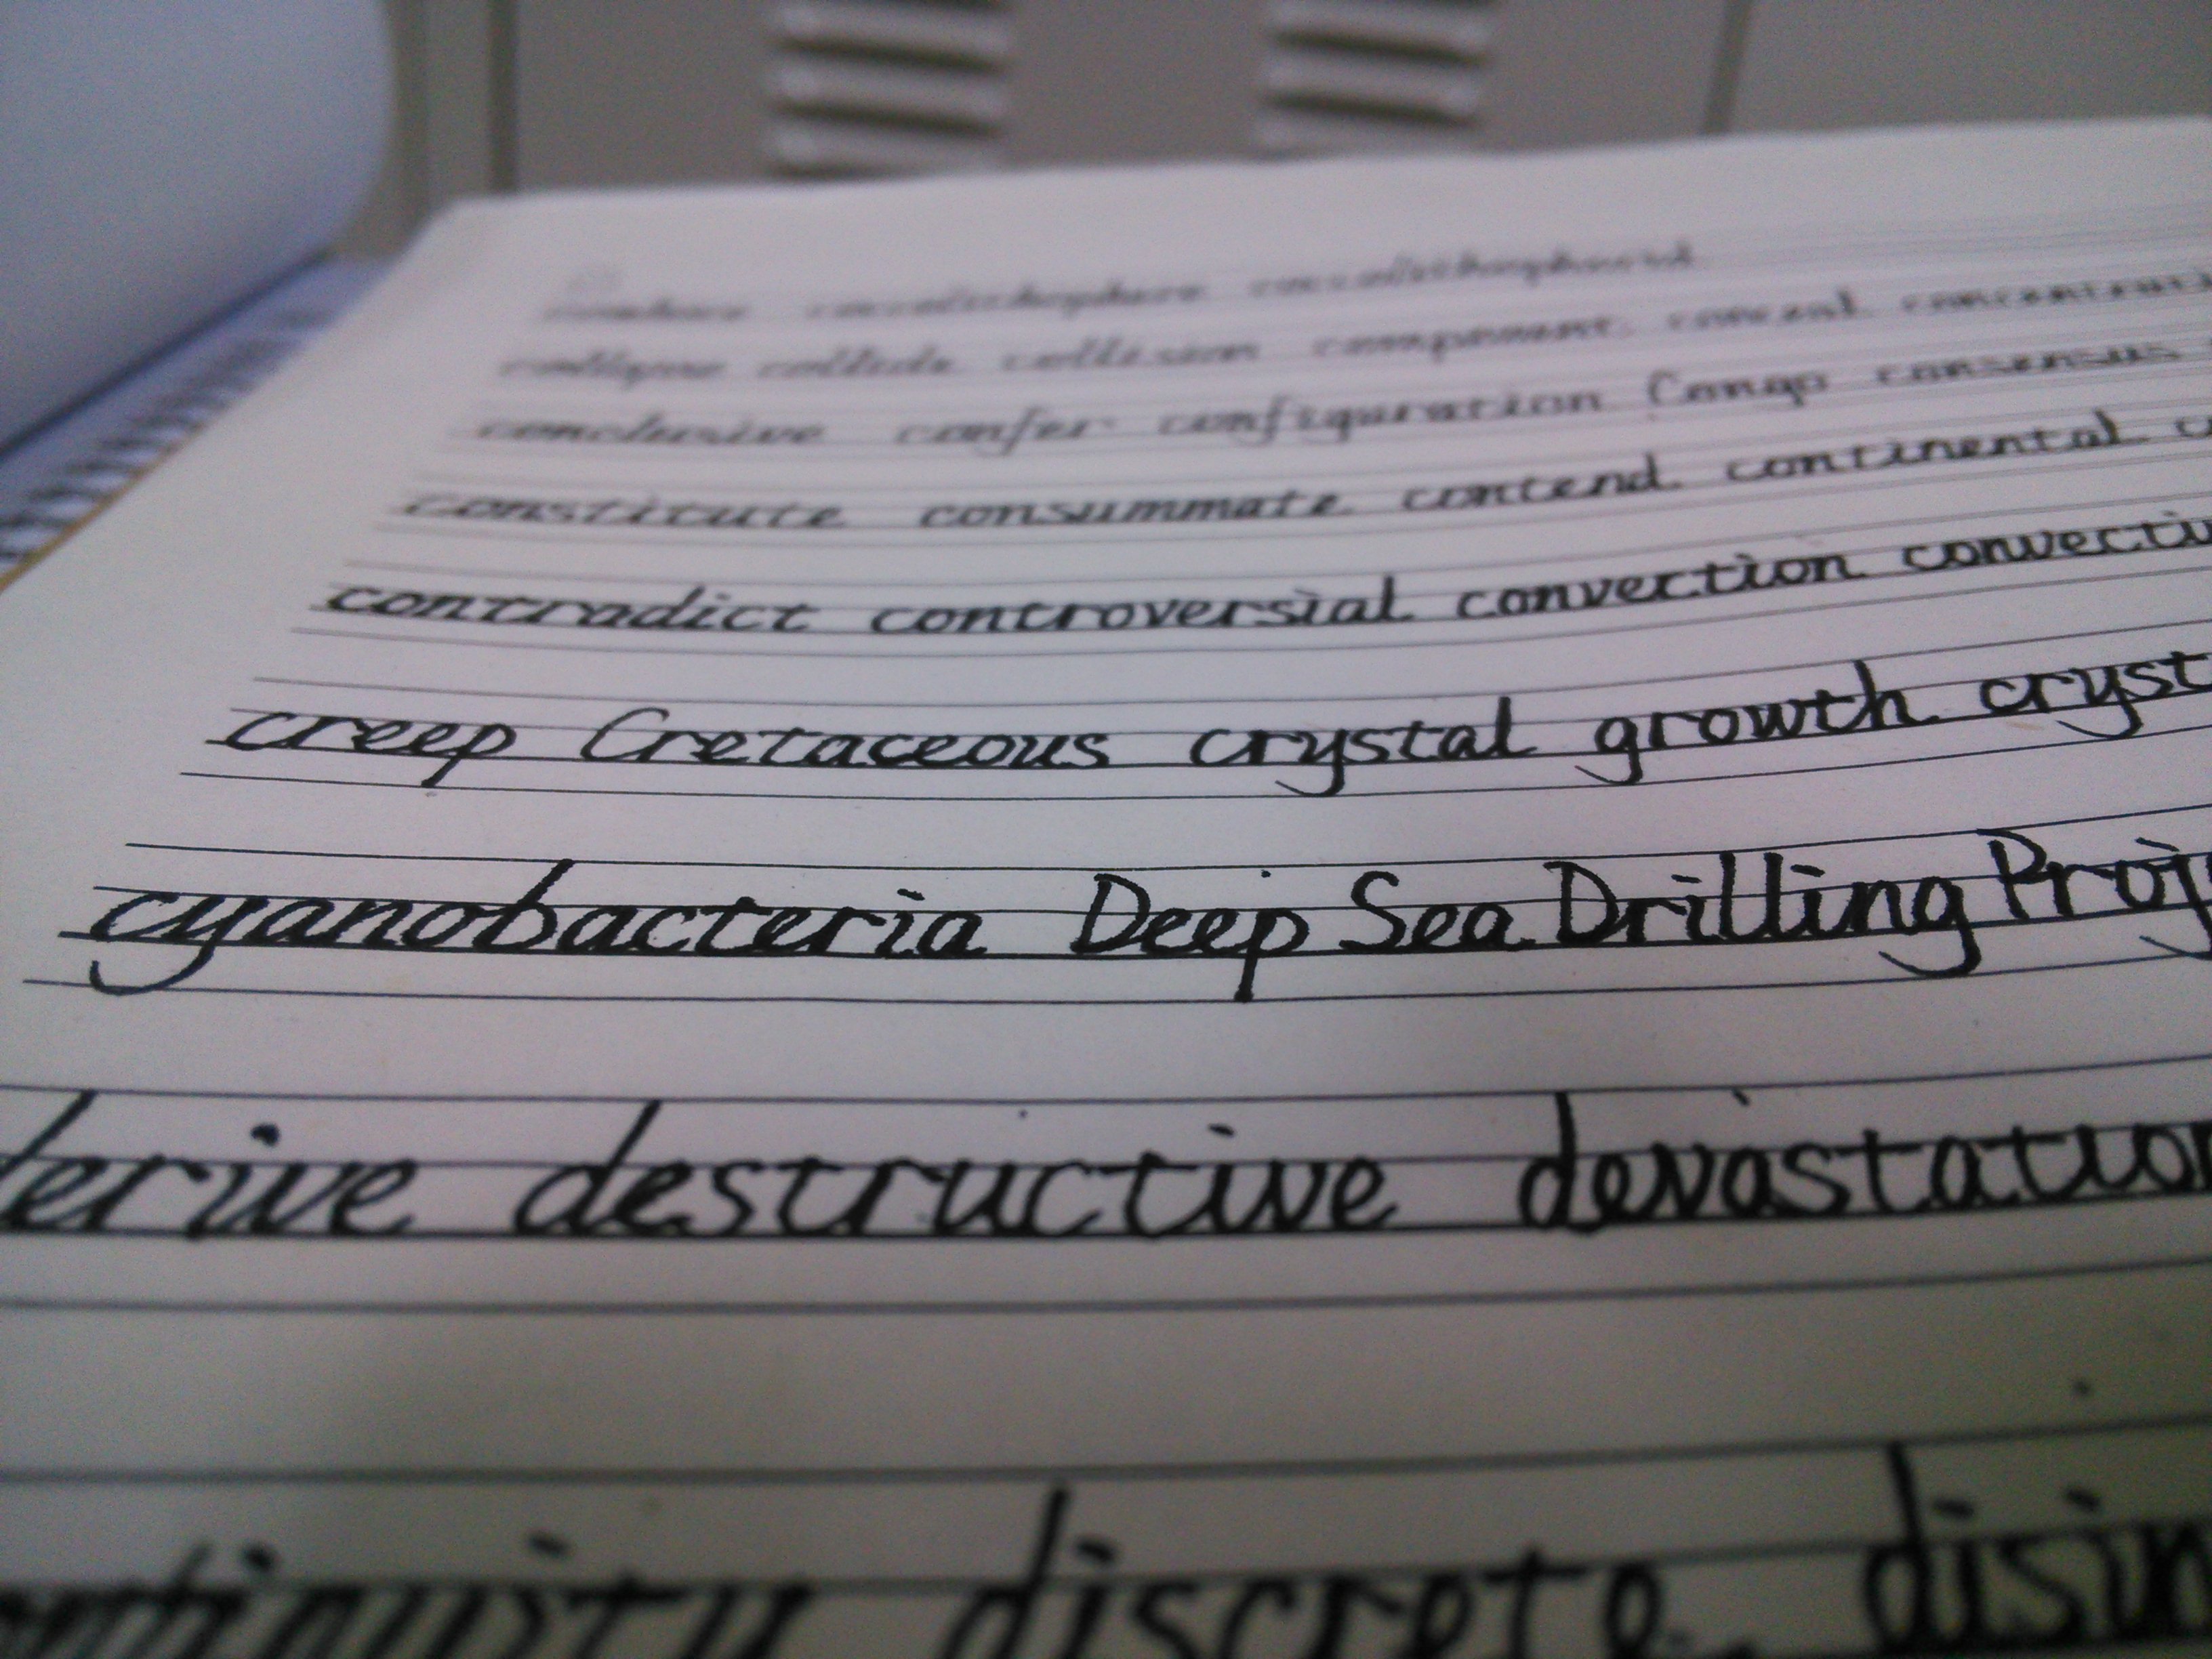 coccolithosphere
collapse collide collision component conceal
conclusive confer configuration Congo consensus
constitute consummate contend continental
contradict controversial convection convecti
creep Cretaceous crystal growth cryst
cyanobacteria Deep Sea Drilling Proj
derive destructive devastation
discrete disin